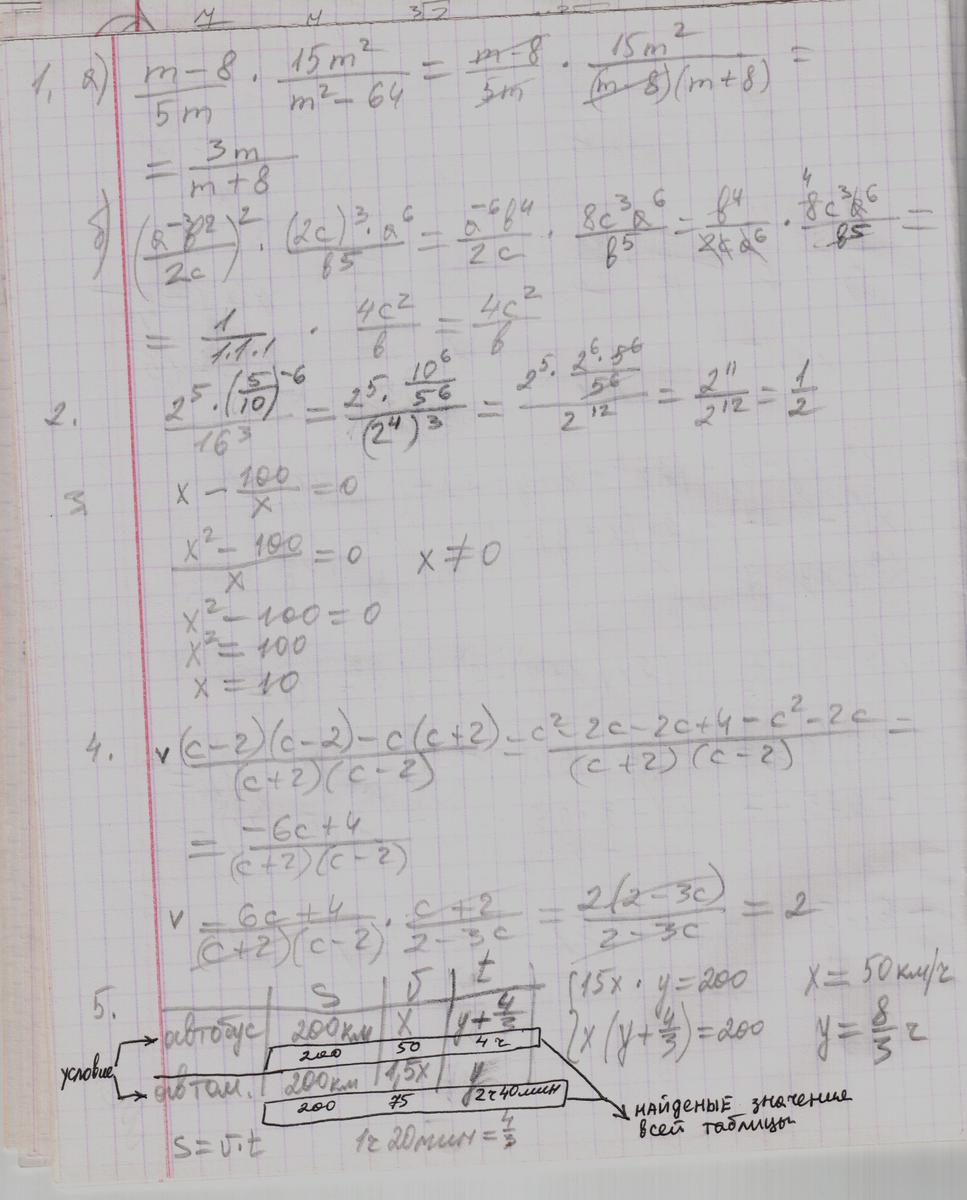 1, а) \frac{m-8}{5m} · \frac{15m^2}{m^2-64} = \frac{m-8}{5m} · \frac{15m^2}{(m-8)(m+8)} =
= \frac{3m}{m+8}
б) (\frac{a^{-3}b^2}{2c})^2 · \frac{(2c)^3·a^6}{b^5} = \frac{a^{-6}b^4}{2c} · \frac{8c^3a^6}{b^5} = \frac{b^4}{2ca^6} · \frac{8c^3a^6}{b^5} =
= \frac{1}{1·1·1} · \frac{4c^2}{b} = \frac{4c^2}{b}
2. \frac{2^5·(\frac{5}{10})^{-6}}{16^3} = \frac{2^5·\frac{10^6}{5^6}}{(2^4)^3} = \frac{2^5·\frac{2^6·5^6}{5^6}}{2^{12}} = \frac{2^{11}}{2^{12}} = \frac{1}{2}
3 x - \frac{100}{x} = 0
\frac{x^2-100}{x} = 0 x ≠ 0
x^2 - 100 = 0
x^2 = 100
x = 10
4. v \frac{(c-2)(c-2)-c(c+2)}{(c+2)(c-2)} = \frac{c^2-2c-2c+4-c^2-2c}{(c+2)(c-2)} =
= \frac{-6c+4}{(c+2)(c-2)}
v \frac{-6c+4}{(c+2)(c-2)} · \frac{c+2}{2-3c} = \frac{2(2-3c)}{2-3c} = 2
5. S V t
автобус 200км x y+\frac{4}{3}
200 50 4ч
автом. 200км 1,5x y
200 75 2ч40мин
S=V·t 1ч 20мин = \frac{4}{3}
условие
{15x · y = 200 x = 50 км/ч
x(y+\frac{4}{3}) = 200 y = \frac{8}{3} ч
НАЙДЕНЫЕ значение
всей таблицы